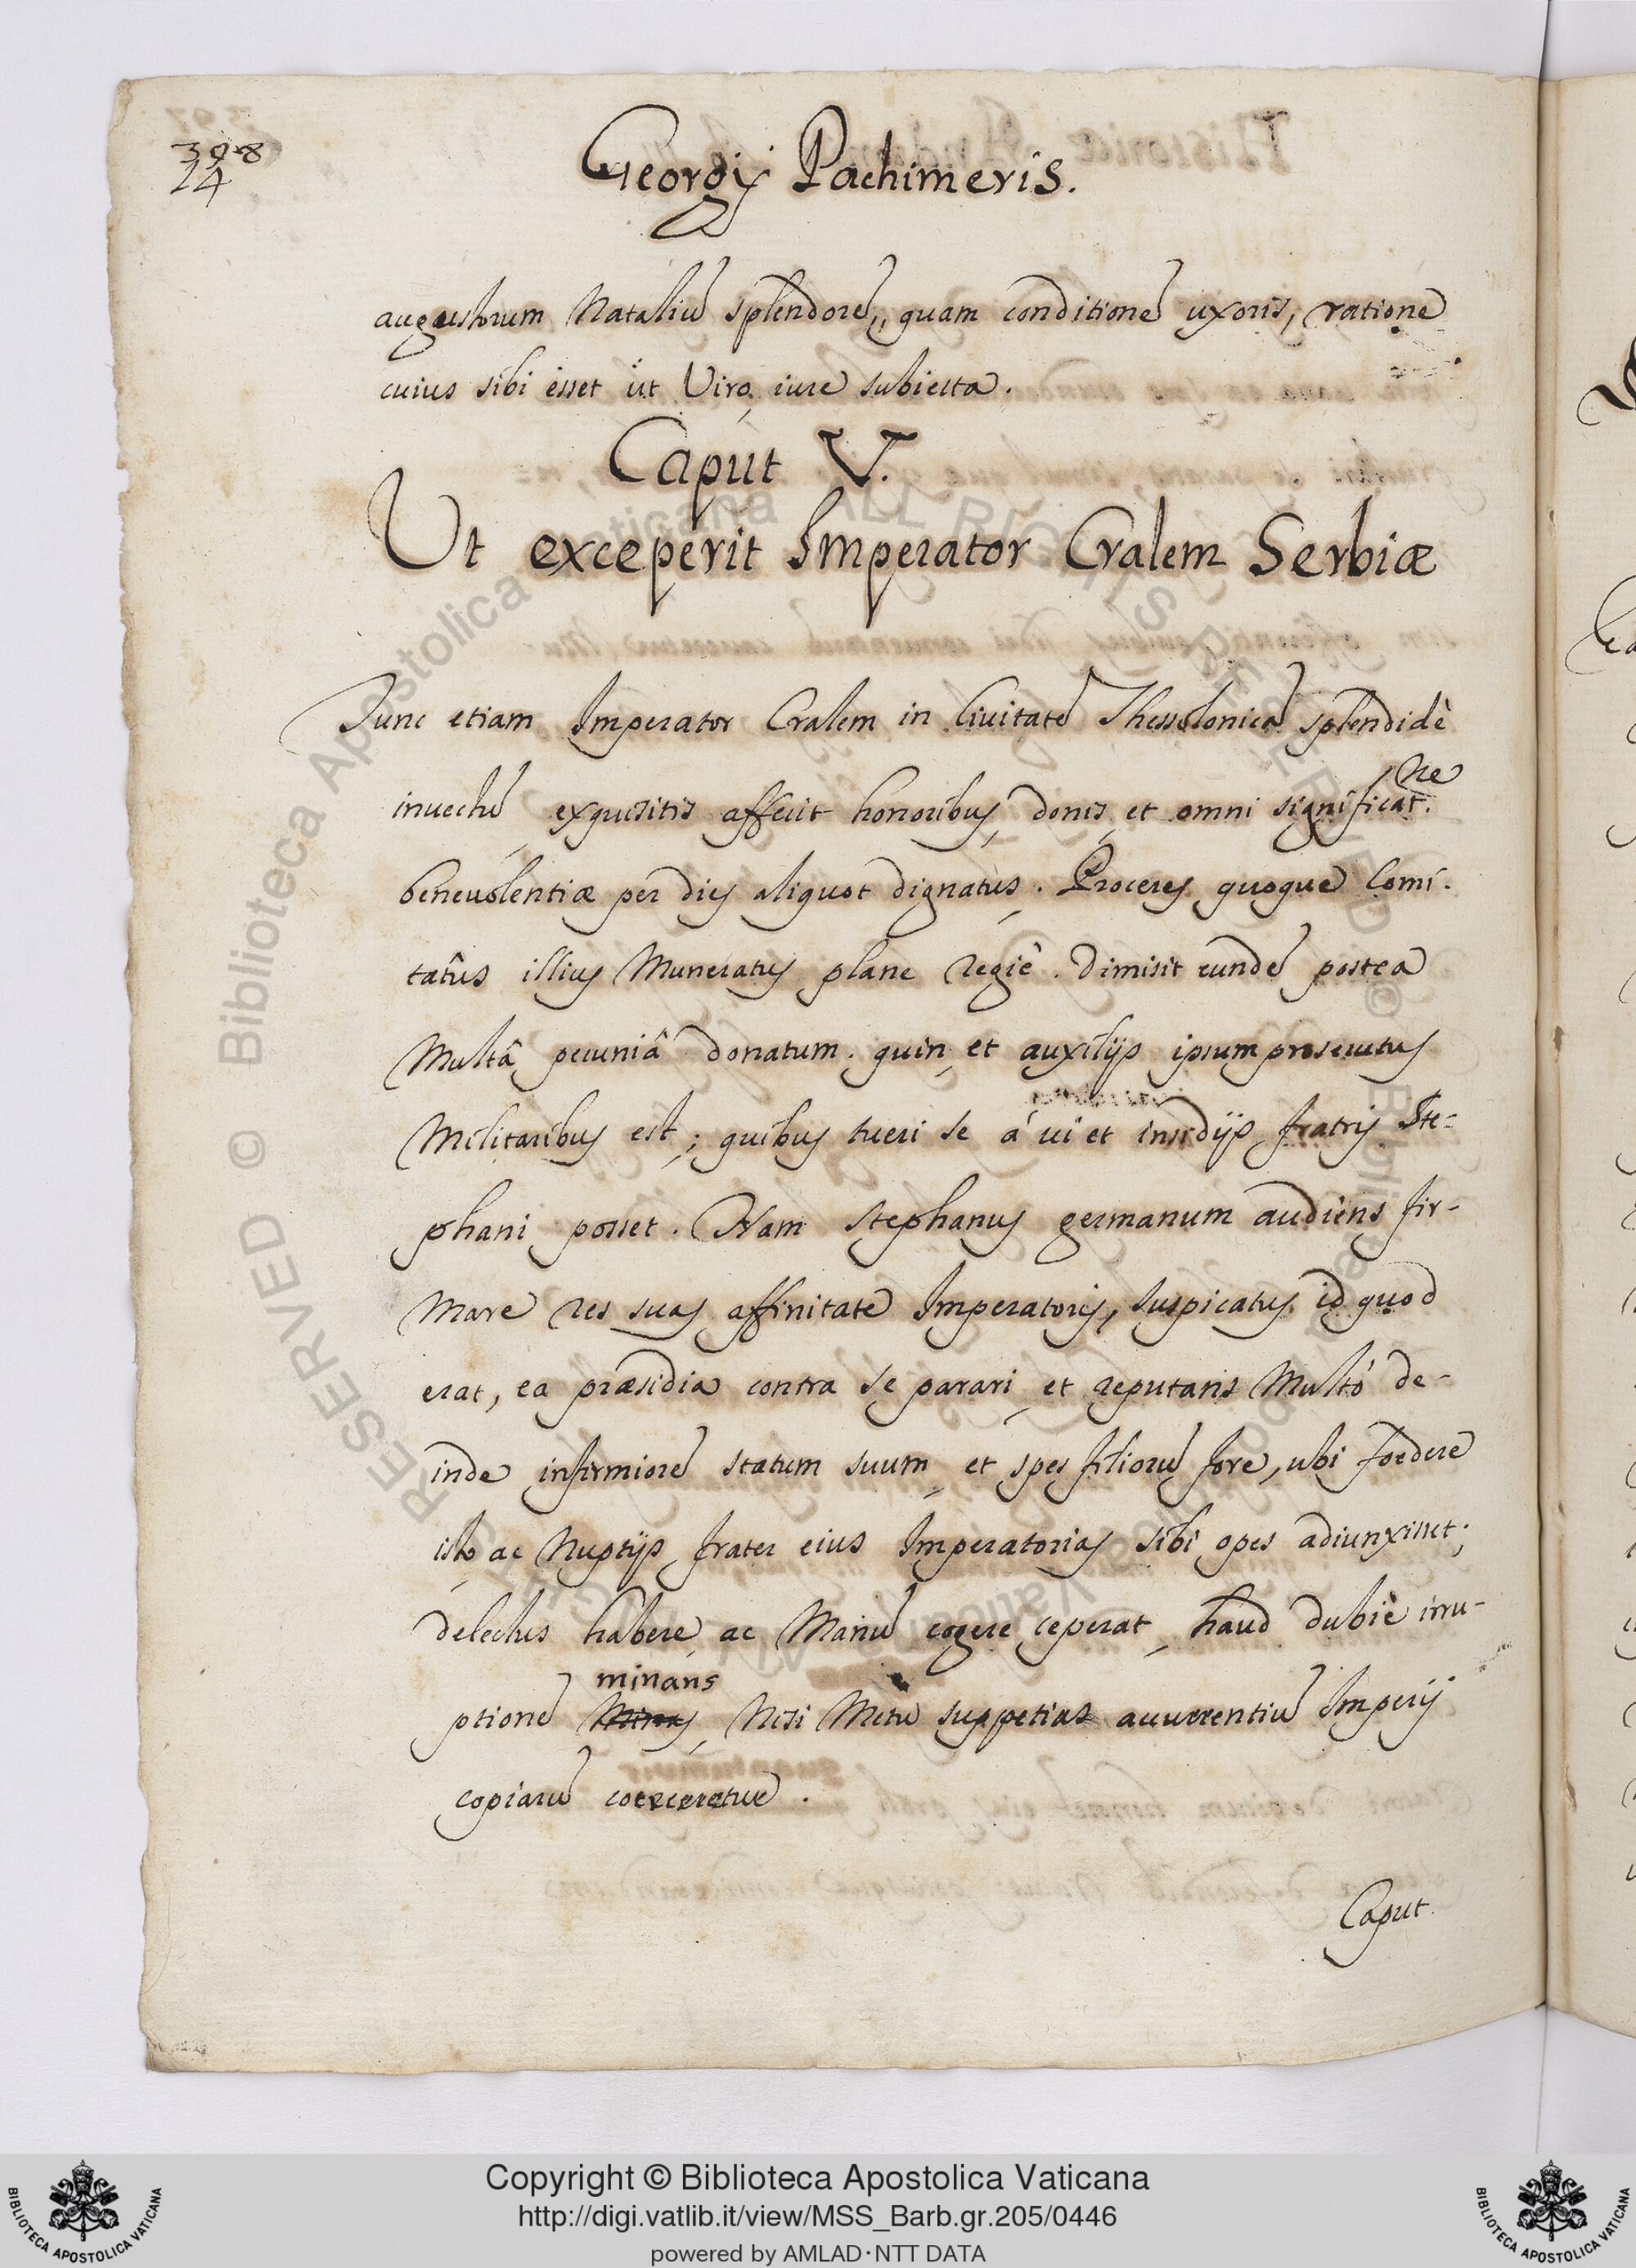 398
14
Georgij Pachimeris.
augustorum Nataliū splendorē, quam conditionē uxoris, ratione
cuius sibi esset ut Viro iure subiecta.
Caput V.
Ut exceperit Imperator Cralem Serbiæ
Tunc etiam Imperator Cralem in Ciuitatē Thessalonicā splendidè
ne
inuectū exquisitis affecit honoribus, donis, et omni significat.
beneuolentiæ per dies aliquot dignatus. Proceres quoque Comi-
tatûs illius Muneratus plane regiè. Dimisit eundē postea
Multâ pecuniâ donatum. quin et auxilijs ipsum prosecutus
Militaribus est; quibus tueri se á ui et insidijs fratris Ste-
phani posset. Nam Stephanus germanum audiens fir-
Mare res suas affinitate Imperatoris, suspicatus id quod
erat, ea præsidia contra se parari et reputans Multò de-
inde infirmiorē statum suum et spes filiorū fore, ubi foedere
isto ac Nuptijs frater eius Imperatorias sibi opes adiunxisset;
delectus habere ac Manū cogere ceperat, haud dubiè irru-
minans
ptionē Nisi Metu suppetias accurrentiū Imperij
copiarū coerceretur.
Caput
Copyright © Biblioteca Apostolica Vaticana
http://digi.vatlib.it/view/MSS_Barb.gr.205/0446
powered by AMLAD·NTT DATA
BIBLIOTECA APOSTOLICA VATICANA
BIBLIOTECA APOSTOLICA VATICANA